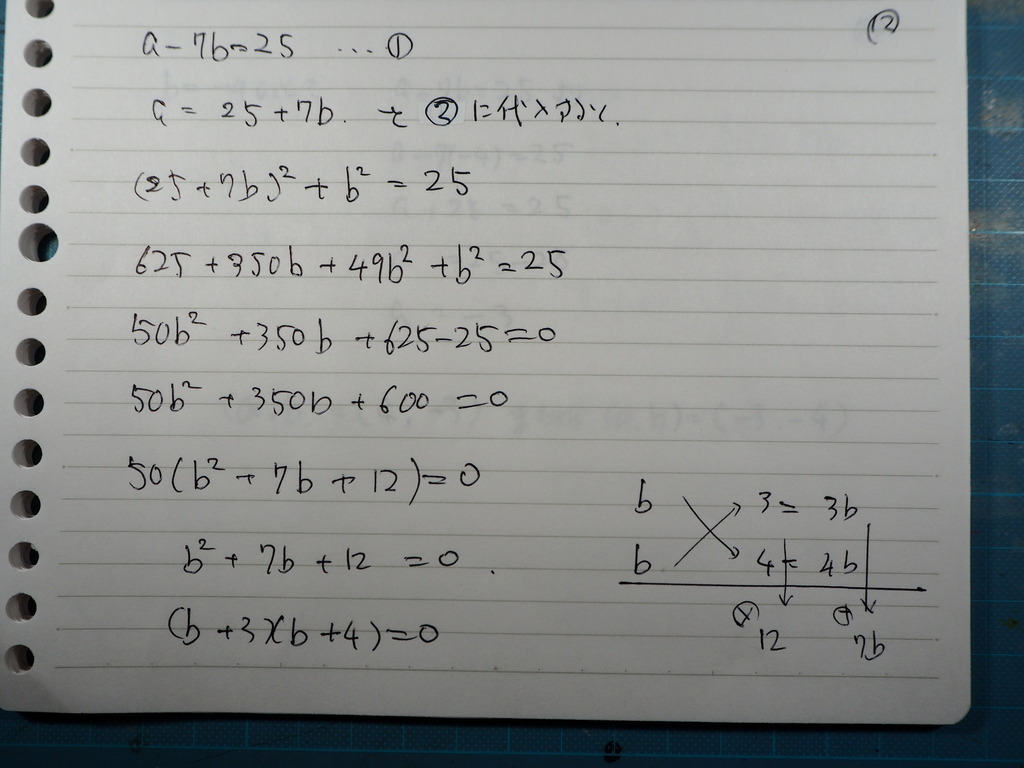 ⑫
a - 7b = 25 … ①
a = 25 + 7b. を ② に代入すると.
(25 + 7b)² + b² = 25
625 + 350b + 49b² + b² = 25
50b² + 350b + 625 - 25 = 0
50b² + 350b + 600 = 0
50(b² + 7b + 12) = 0
b² + 7b + 12 = 0.
(b + 3)(b + 4) = 0
b 3 = 3b
b 4 = 4b
⊗ 12 ⊕ 7b